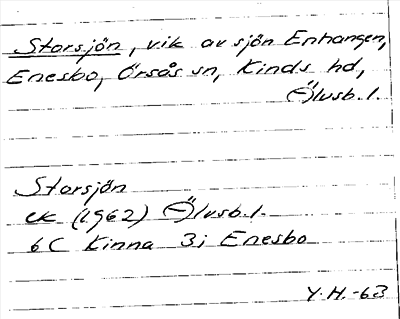 Storsjön, vik av sjön Enhangen,
Enesbo, Örsås sn, Kinds hd,
Älvsb. l.
Storsjön
ek (1962) Älvsb. l.
6C Kinna 3i Enesbo
Y. H. -63